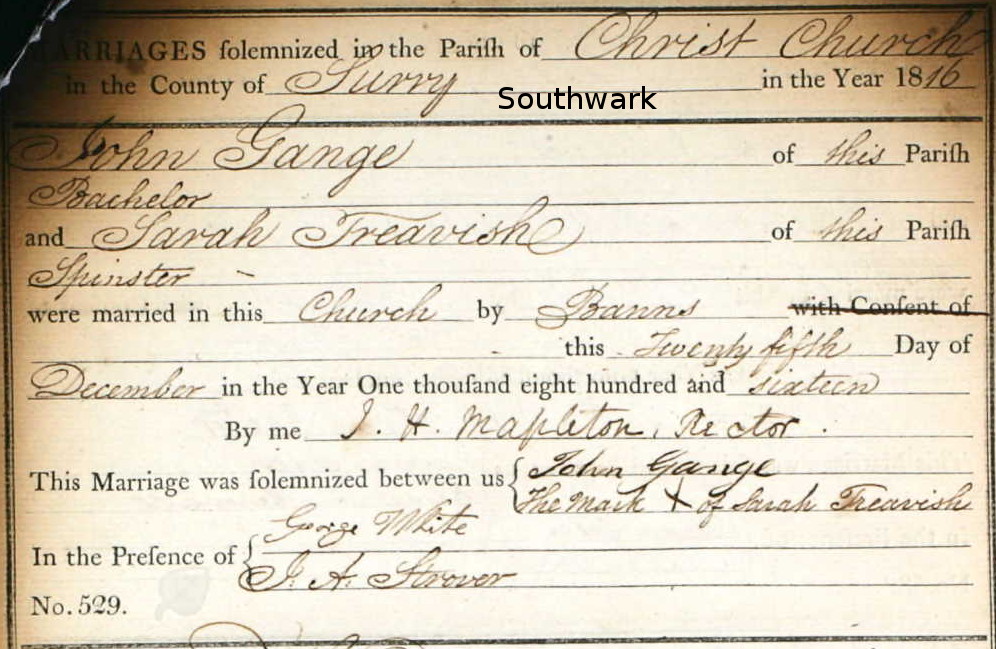 MARRIAGES ſolemnized in the Pariſh of Christ Church
in the County of Surry in the Year 1816
Southwark
John Gange of this Pariſh
Bachelor
and Sarah Treavish of this Pariſh
Spinster
were married in this Church by Banns with Conſent of
this Twenty fifth Day of
December in the Year One thouſand eight hundred and sixteen
By me J. H. Mapleton, Rector.
This Marriage was ſolemnized between us { John Gange
The Mark X of Sarah Treavish
George White
In the Preſence of {
J. A. Strover
No. 529.